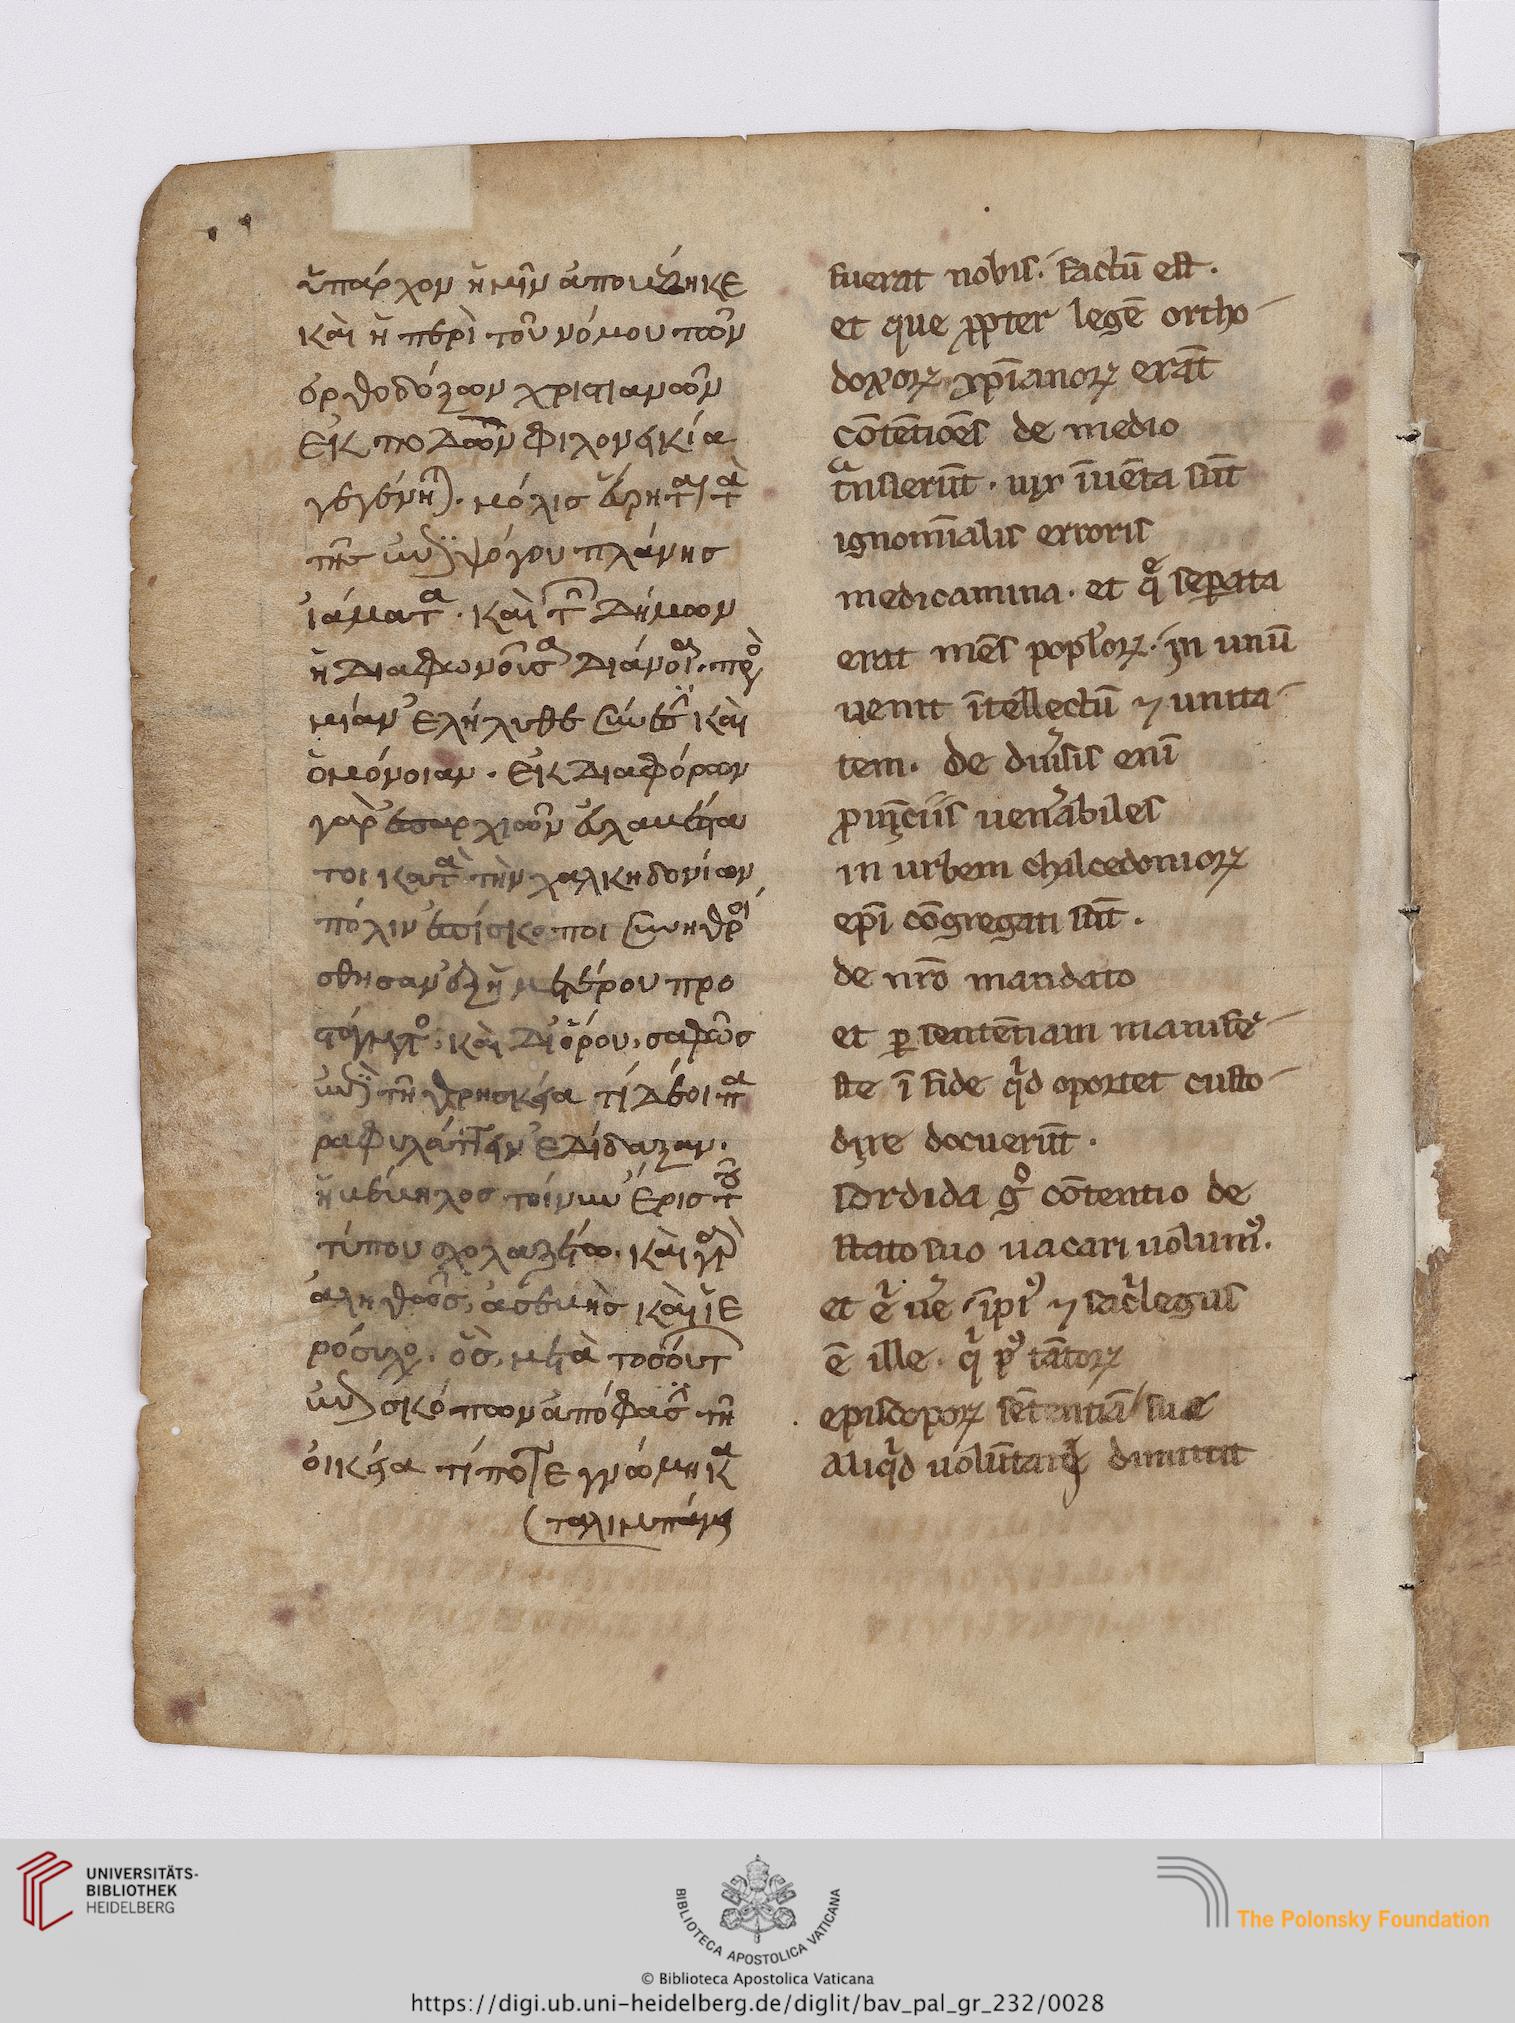 ὑπάρχον ἡμῖν ἀποπέβηκε
καὶ ἡ περὶ τοῦ νόμου τῶν
ὀρθοδόξων χριστιανῶν
ἐκ ποδῶν φιλονεικία
γεγένηται. μόλις
τῆς ψόγου πλάνης
ἰάματα. καὶ τῶν δήμων
ἡ διαφωνοῦσα διάνοια. πρὸς
μίαν ἐλήλυθε σύνεσιν καὶ
ὁμόνοιαν. ἐκ διαφόρων
γὰρ ἐπαρχιῶν
τοι κατὰ τὴν χαλκηδονίων
πόλιν ἐπίσκοποι συνηθροί
σθησαν ἐξ ἡμετέρου προ
στάγματος. καὶ δι ὅρου. σαφῶς
ἐν τῇ θρησκεία τί δέοι πα
ραφυλάττειν ἐδίδαξαν.
ἡ βέβηλος τοίνυν ἔρις τοῦ
τύπου σχολαζέτω. καὶ γὰρ
ἀληθῶς, ἀσεβὴς καὶ ἱε
ρόσυλος. ὃς, μετὰ τοσούτων
ἐπισκόπων ἀπόφασιν τῇ
οἰκεία τί ποτε γνώμη κα
ταλιμπάνει
fuerat nobis. factū est.
et que ꝓpter legē ortho
doxoꝝ xp̄ianoꝝ erāt
cōtētiōes de medio
tͣnsierūt. uix īuēta sūt
ignomīalis erroris
medicamina. et q̄ seꝑata
erat mēs popl'oꝝ. in unū
uenit ītellectū ⁊ unita
tem. de diu'sis enī
ꝓuīciis uen'abiles
in urbem chalcedonioꝝ
ep̄i cōgregati sūt.
de nr̄o mandato
et ꝑ sentētiam manife
ste ī fide qͥd oportet custo
dire docuerūt.
sordida gͦ cōtentio de
stato suo uacari uolumꝰ.
et e'. ue' īpiꝰ ⁊ sac'legus
ē ille. qͥ pꝰ tātoꝝ
episcopoꝝ sētentiā sue
aliqͥd uolūtati dimittit
UNIVERSITÄTS-
BIBLIOTHEK
HEIDELBERG
BIBLIOTECA APOSTOLICA VATICANA
The Polonsky Foundation
© Biblioteca Apostolica Vaticana
https://digi.ub.uni-heidelberg.de/diglit/bav_pal_gr_232/0028